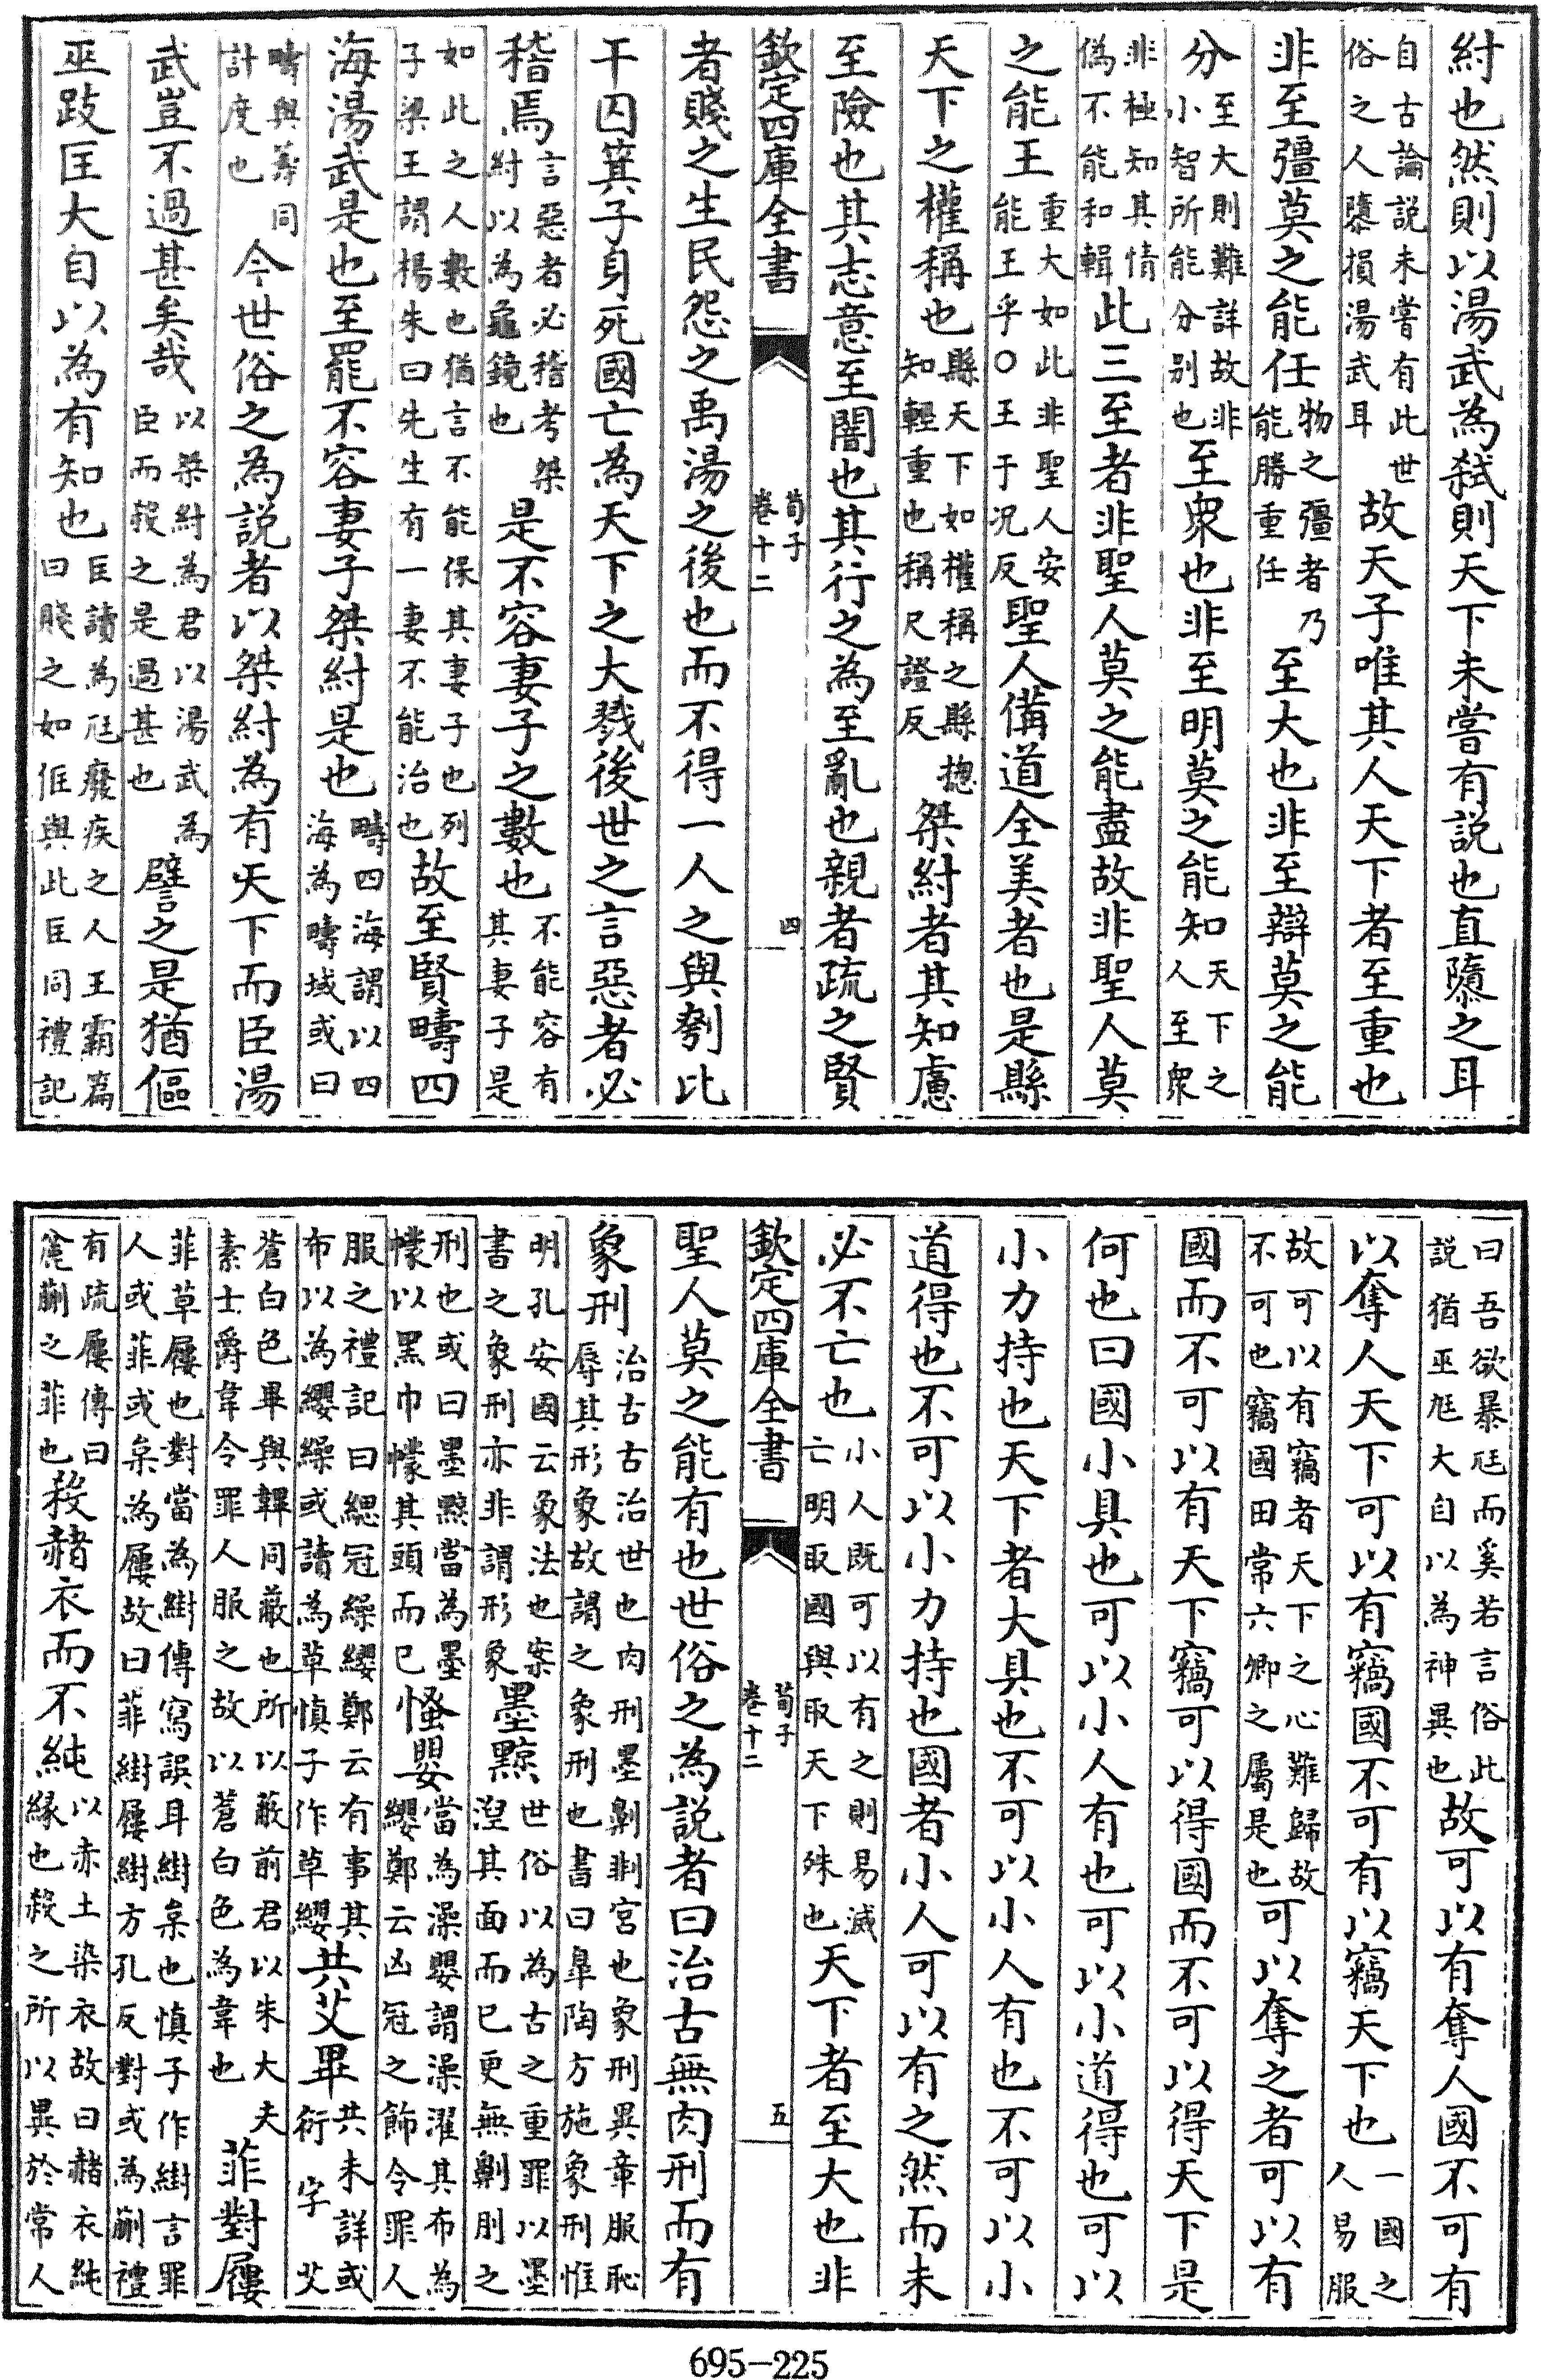 紂也然則以湯武為弑則天下未嘗有説也直隳之耳
自古論説未嘗有此世俗之人隳損湯武耳故天子唯其人天下者至重也
非至彊莫之能任物之彊者乃能勝重任至大也非至辯莫之能
分至大則難詳故非小智所能分别也至衆也非至明莫之能知天下之人至衆
非極知其情偽不能和輯此三至者非聖人莫之能盡故非聖人莫
之能王重大如此非聖人安能王乎○王于况反聖人備道全美者也是縣
天下之權稱也縣天下如權稱之縣揔知輕重也稱尺證反桀紂者其知慮
至險也其志意至闇也其行之為至亂也親者疏之賢
欽定四庫全書
荀子
卷十二
四
者賤之生民怨之禹湯之後也而不得一人之與刳比
干囚箕子身死國亡為天下之大戮後世之言惡者必
稽焉言惡者必稽考桀紂以為龜鏡也是不容妻子之數也不能容有其妻子是
如此之人數也猶言不能保其妻子也列子梁王謂楊朱曰先生有一妻不能治也故至賢疇四
海湯武是也至罷不容妻子桀紂是也疇四海謂以四海為疇域或曰
疇與籌同計度也今世俗之為説者以桀紂為有天下而臣湯
武豈不過甚矣哉以桀紂為君以湯武為臣而殺之是過甚也譬之是猶傴
巫跂匡大自以為有知也匡讀為尫廢疾之人王霸篇曰賤之如尫與此匡同禮記
曰吾欲暴尫而奚若言俗此説猶巫尫大自以為神異也故可以有奪人國不可有
以奪人天下可以有竊國不可有以竊天下也一國之人易服
故可以有竊者天下之心難歸故不可也竊國田常六卿之屬是也可以奪之者可以有
國而不可以有天下竊可以得國而不可以得天下是
何也曰國小具也可以小人有也可以小道得也可以
小力持也天下者大具也不可以小人有也不可以小
道得也不可以小力持也國者小人可以有之然而未
必不亡也小人既可以有之則易滅亡明取國與取天下殊也天下者至大也非
欽定四庫全書
荀子
卷十二
五
聖人莫之能有也世俗之為説者曰治古無肉刑而有
象刑治古古治世也肉刑墨劓剕宮也象刑異章服恥辱其形象故謂之象刑也書曰臯陶方施象刑惟
明孔安國云象法也案書之象刑亦非謂形象墨黥世俗以為古之重罪以墨涅其面而已更無劓刖之
刑也或曰墨黥當為墨幪以黑巾幪其頭而已慅嬰當為澡嬰謂澡濯其布為纓鄭云凶冠之飾令罪人
服之禮記曰緦冠繰纓鄭云有事其布以為纓繰或讀為草慎子作草纓共艾畢共未詳或衍字艾
蒼白色畢與韠同蔽也所以蔽前君以朱大夫素士爵韋令罪人服之故以蒼白色為韋也菲對屨
菲草屨也對當為紨傳寫誤耳紨枲也慎子作紨言罪人或菲或枲為屨故曰菲紨屨紨方孔反對或為蒯禮
有疏屨傳曰藨蒯之菲也殺赭衣而不純以赤土染衣故曰赭衣純緣也殺之所以異於常人
695-225